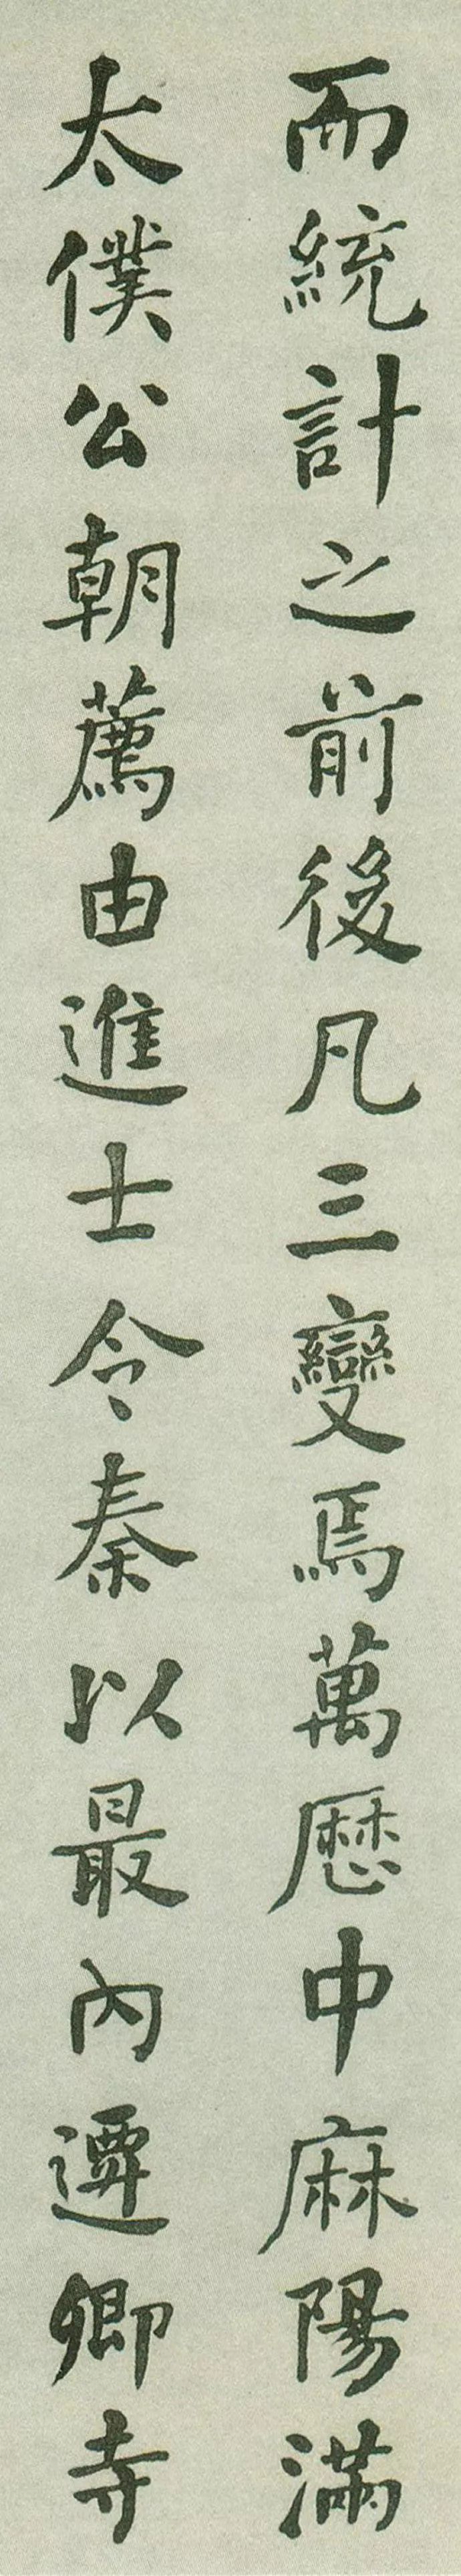 而統計之前後凡三變焉萬厯中麻陽滿
太僕公朝薦由進士令秦以最內遷卿寺